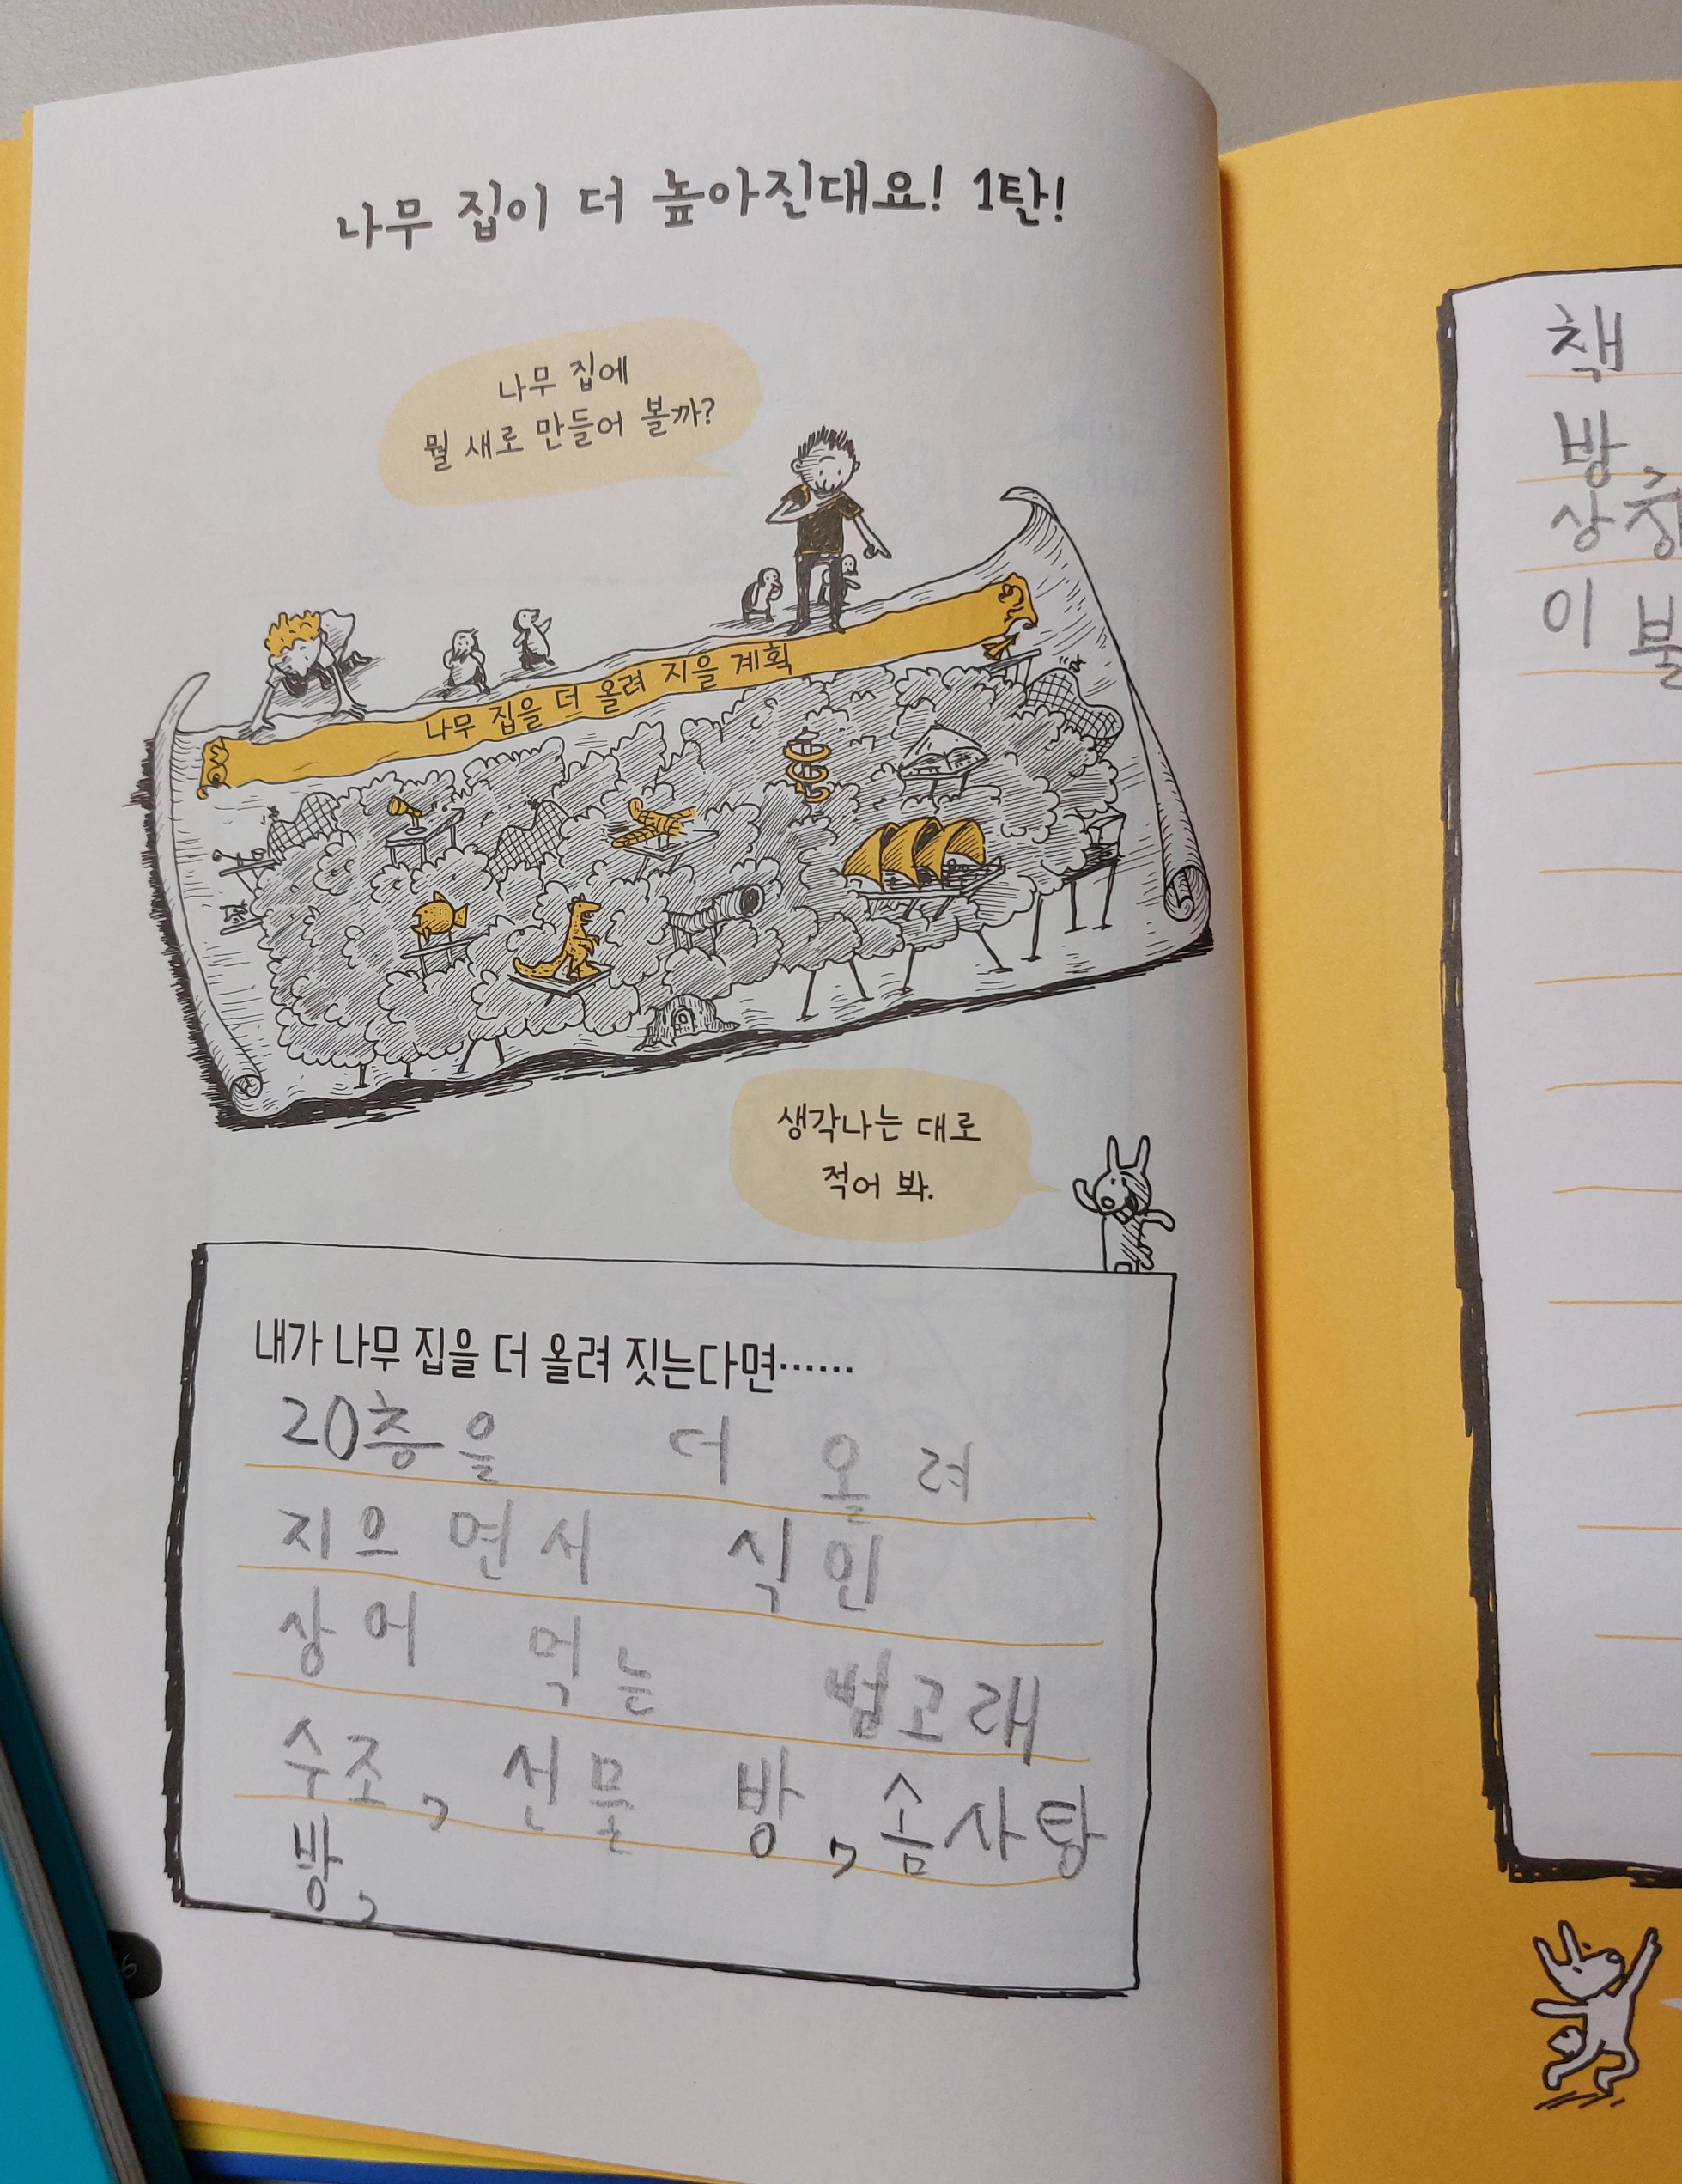 나무 집이 더 높아진대요! 1탄!
나무 집에
뭘 새로 만들어 볼까?
나무 집을 더 올려 지을 계획
생각나는 대로
적어 봐.
내가 나무 집을 더 올려 짓는다면……
20층을 더 올려
지으면서 식인
상어 먹는 범고래
수조, 선물 방, 솜사탕
방,
6
책
방,
상
이 불